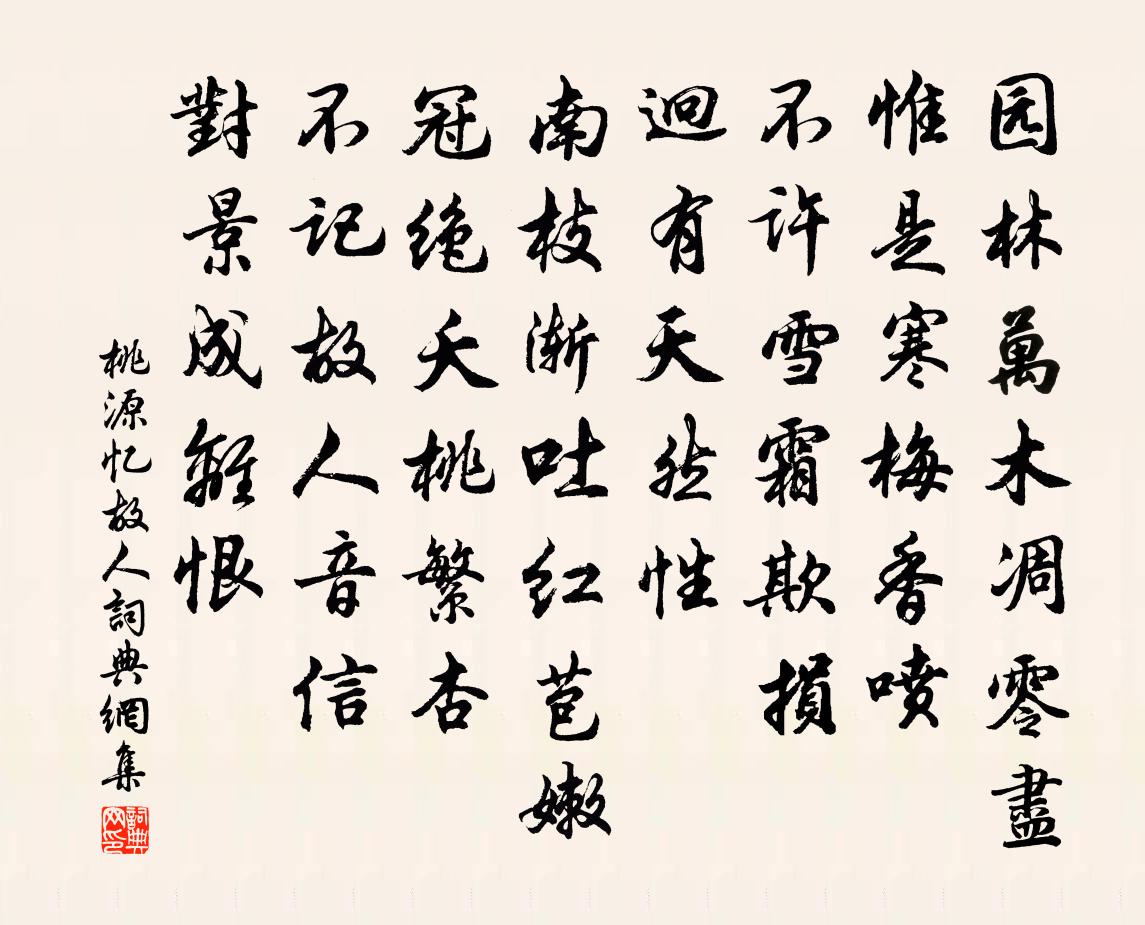 园林萬木凋零盡
惟是寒梅香喷
不许雪霜欺損
迥有天然性
南枝渐吐红苞嫩
冠绝夭桃繁杏
不记故人音信
對景成離恨
桃源忆故人詞典網集
詞典網印